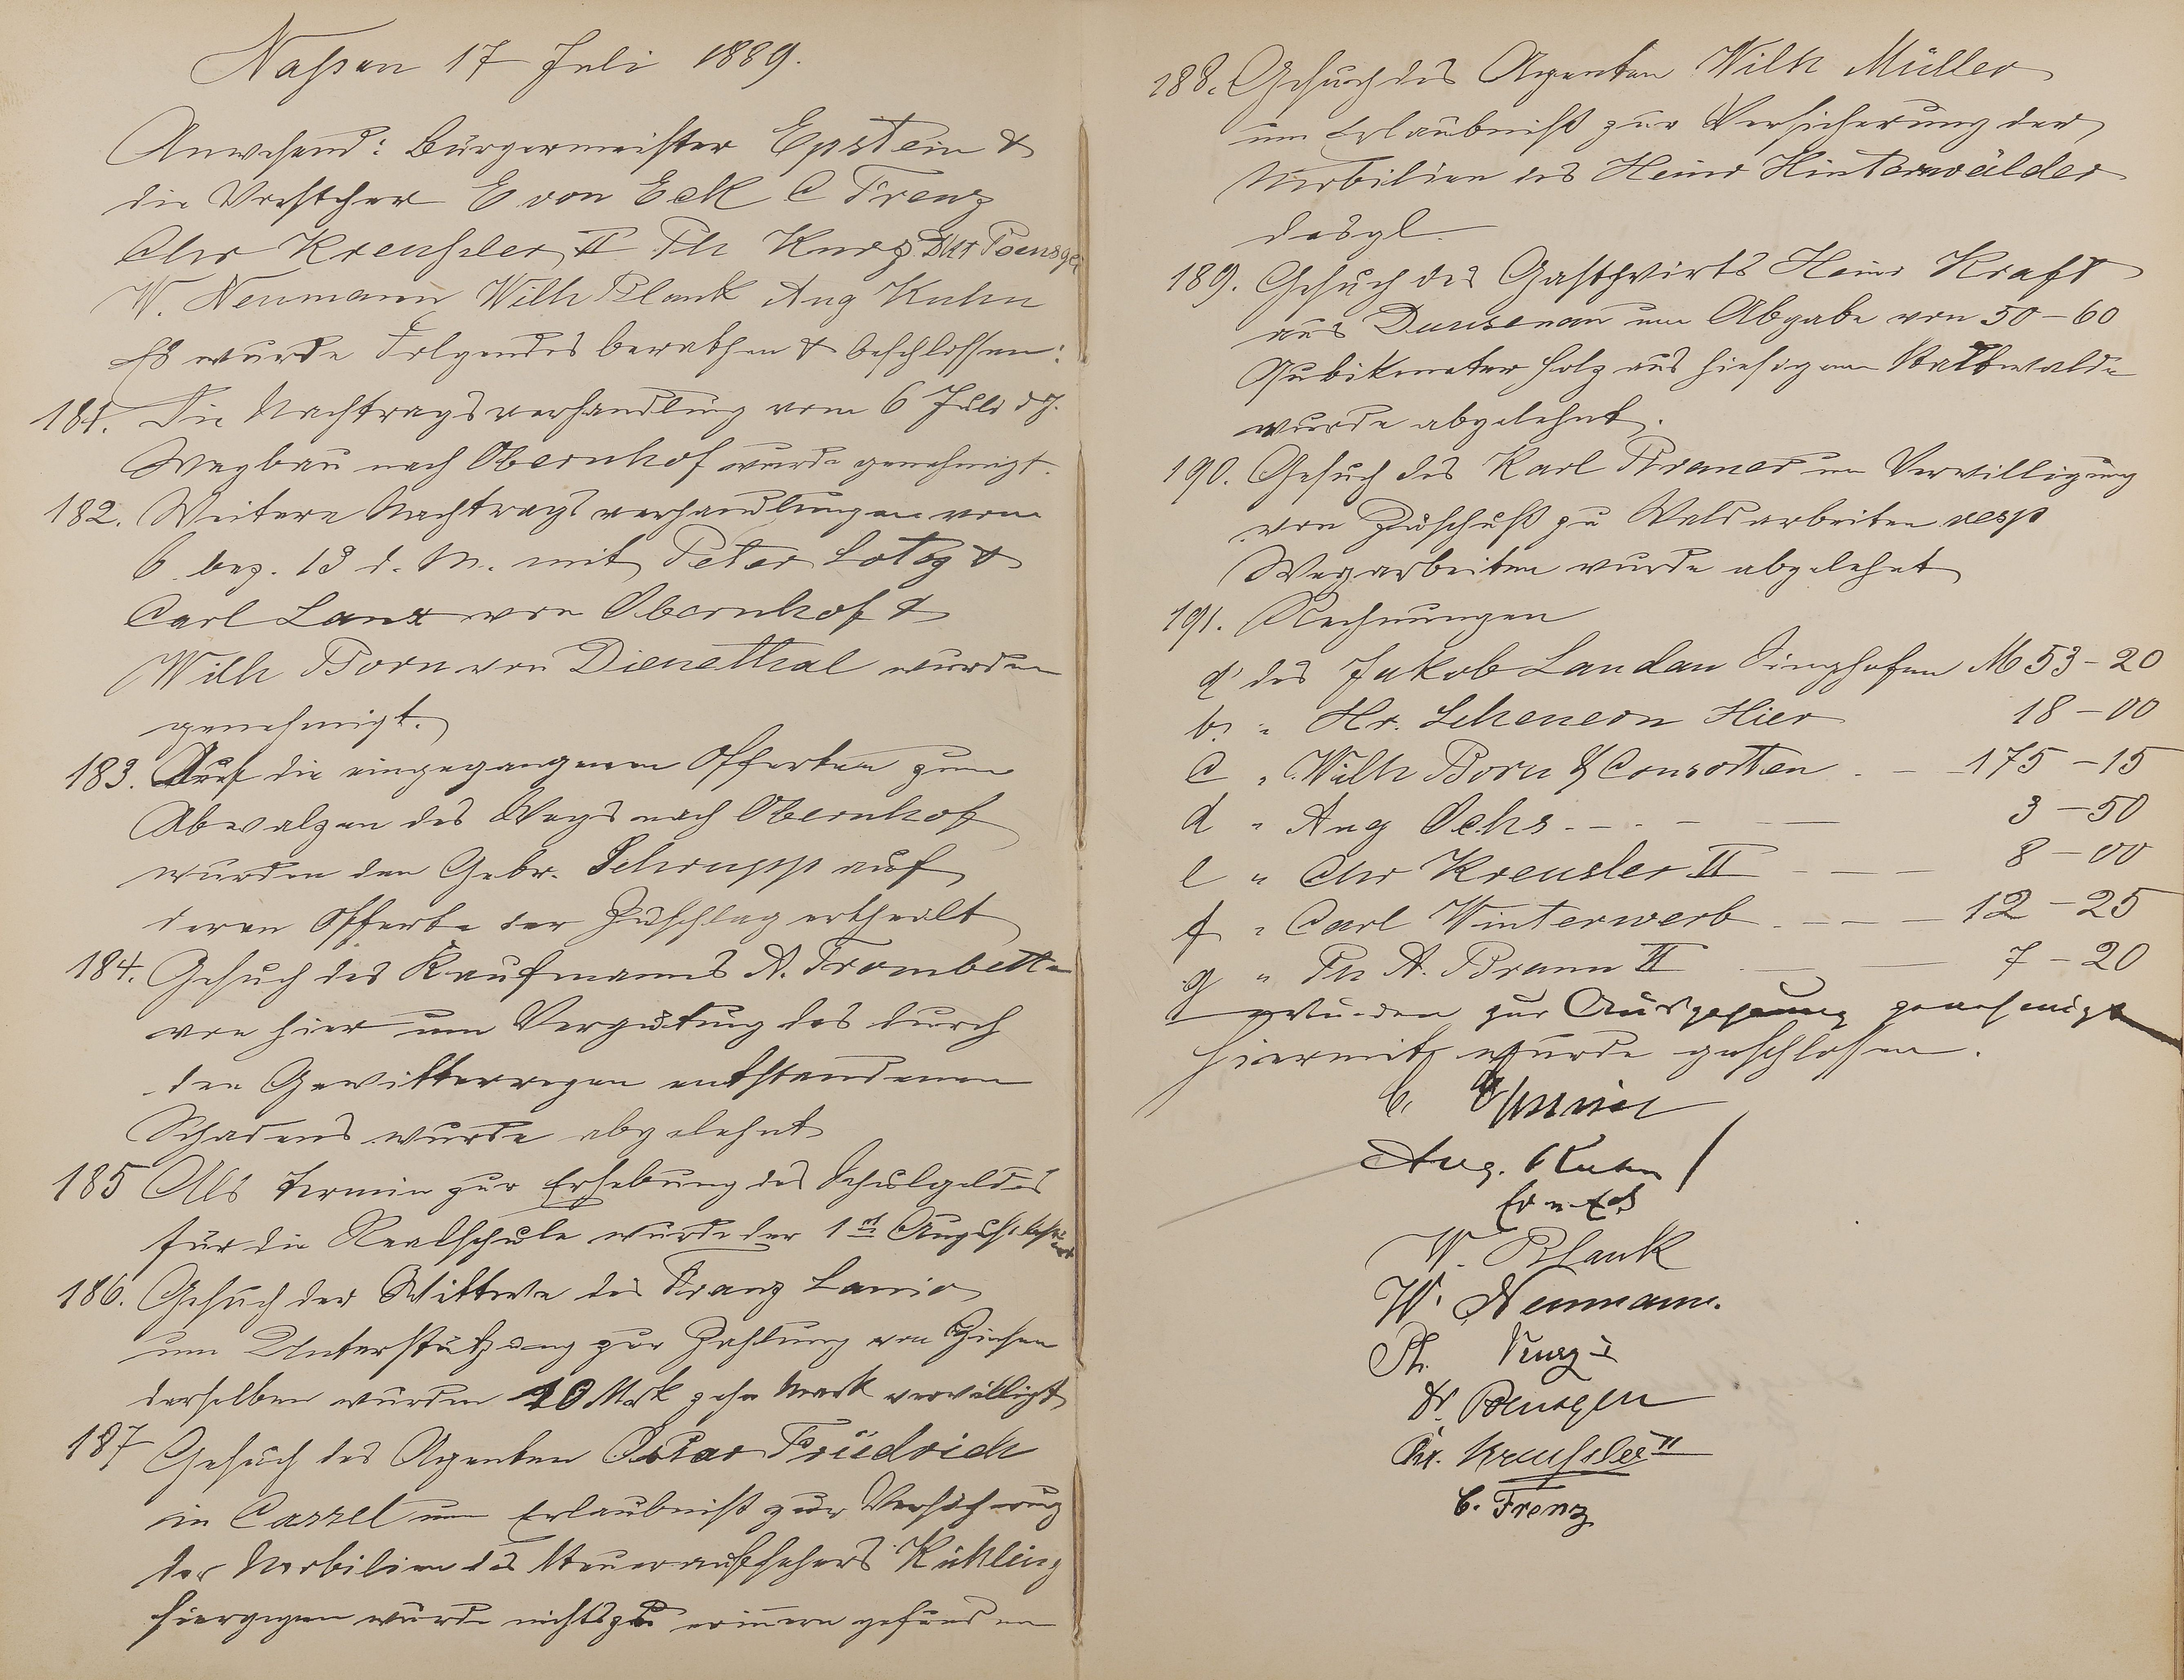 Nassau 17 Juli 1889.
Anwesend: Bürgermeister Epstein &
die Vorsteher E von Eck C Frenz
Chr Kreusler II Ph Kurz Dr Poensgen
W. Neumann Wilh Blank Aug Kuhn
Es wurde Folgendes berathen & beschlossen:
181. Die Nachtragsverhandlung vom 6 Juli d J.
Wegbau nach Obernhof wurde genehmigt.
182. Weitere Nachtragsverhandlungen vom
6. bez. 13 d. M. mit Peter Lotz &
Carl Lanx von Obernhof &
Wilh Born von Dienethal wurden
genehmigt.
183. Auf die eingegangenen Offerten zum
Abwalzen des Wegs nach Obernhof
wurden den Gebr. Schrupp auf
deren Offerte der Zuschlag ertheilt
184. Gesuch des Kaufmanns A. Trombetta
von hier um Vergütung des durch
den Gewitterregen entstandenen
Schadens wurde abgelehnt
185 Als Termin zur Erhebung des Schulgeldes
für die Realschule wurde der 1st August bestimmt
186. Gesuch der Wittwe des Franz Lanio
um Unterstützung zur Zahlung von Zinsen
derselben wurden 10 Mrk zehn Mark verwilligt
187 Gesuch des Agenten Oskar Friedrich
in Cassel um Erlaubniß zur Versicherung
der Mobilien des Steueraufsehers Kühling
hiergegen wurde nichts zu erinnern gefunden
188. Gesuch des Agenten Wilh Müller
um Erlaubniß zur Versicherung der
Mobilien des Heinr Hinterwälder
desgl.
189. Gesuch des Gastwirts Heinr Kraft
aus Dausenau um Abgabe von 50-60
Cubikmeter Holz aus hiesigem Stadtwalde
wurde abgelehnt.
190. Gesuch des Karl Bremer um Verwilligung
von Zuschuß zu Waldarbeiten resp
Wegarbeiten wurde abgelehnt
191. Rechnungen
a des Jakob Landau Singhofen M 53-20
b. " Hr. Scheuern Hier 18-00
c " Wilh Born & Consorten 175-15
d " Aug Ochs 3-50
e " Chr Kreusler II 8-00
f " Carl Winterwerb 12-25
g " Ph A. Braun II 7-20
wurden zur genehmigt
Hiermit wurde geschlossen.
C. Epstein
Aug. Kuhn
E v. Eck
W. Blank
W. Neumann.
Ph. Kurz I
Dr. Poensgen
Chr. Kreusler II
C. Frenz